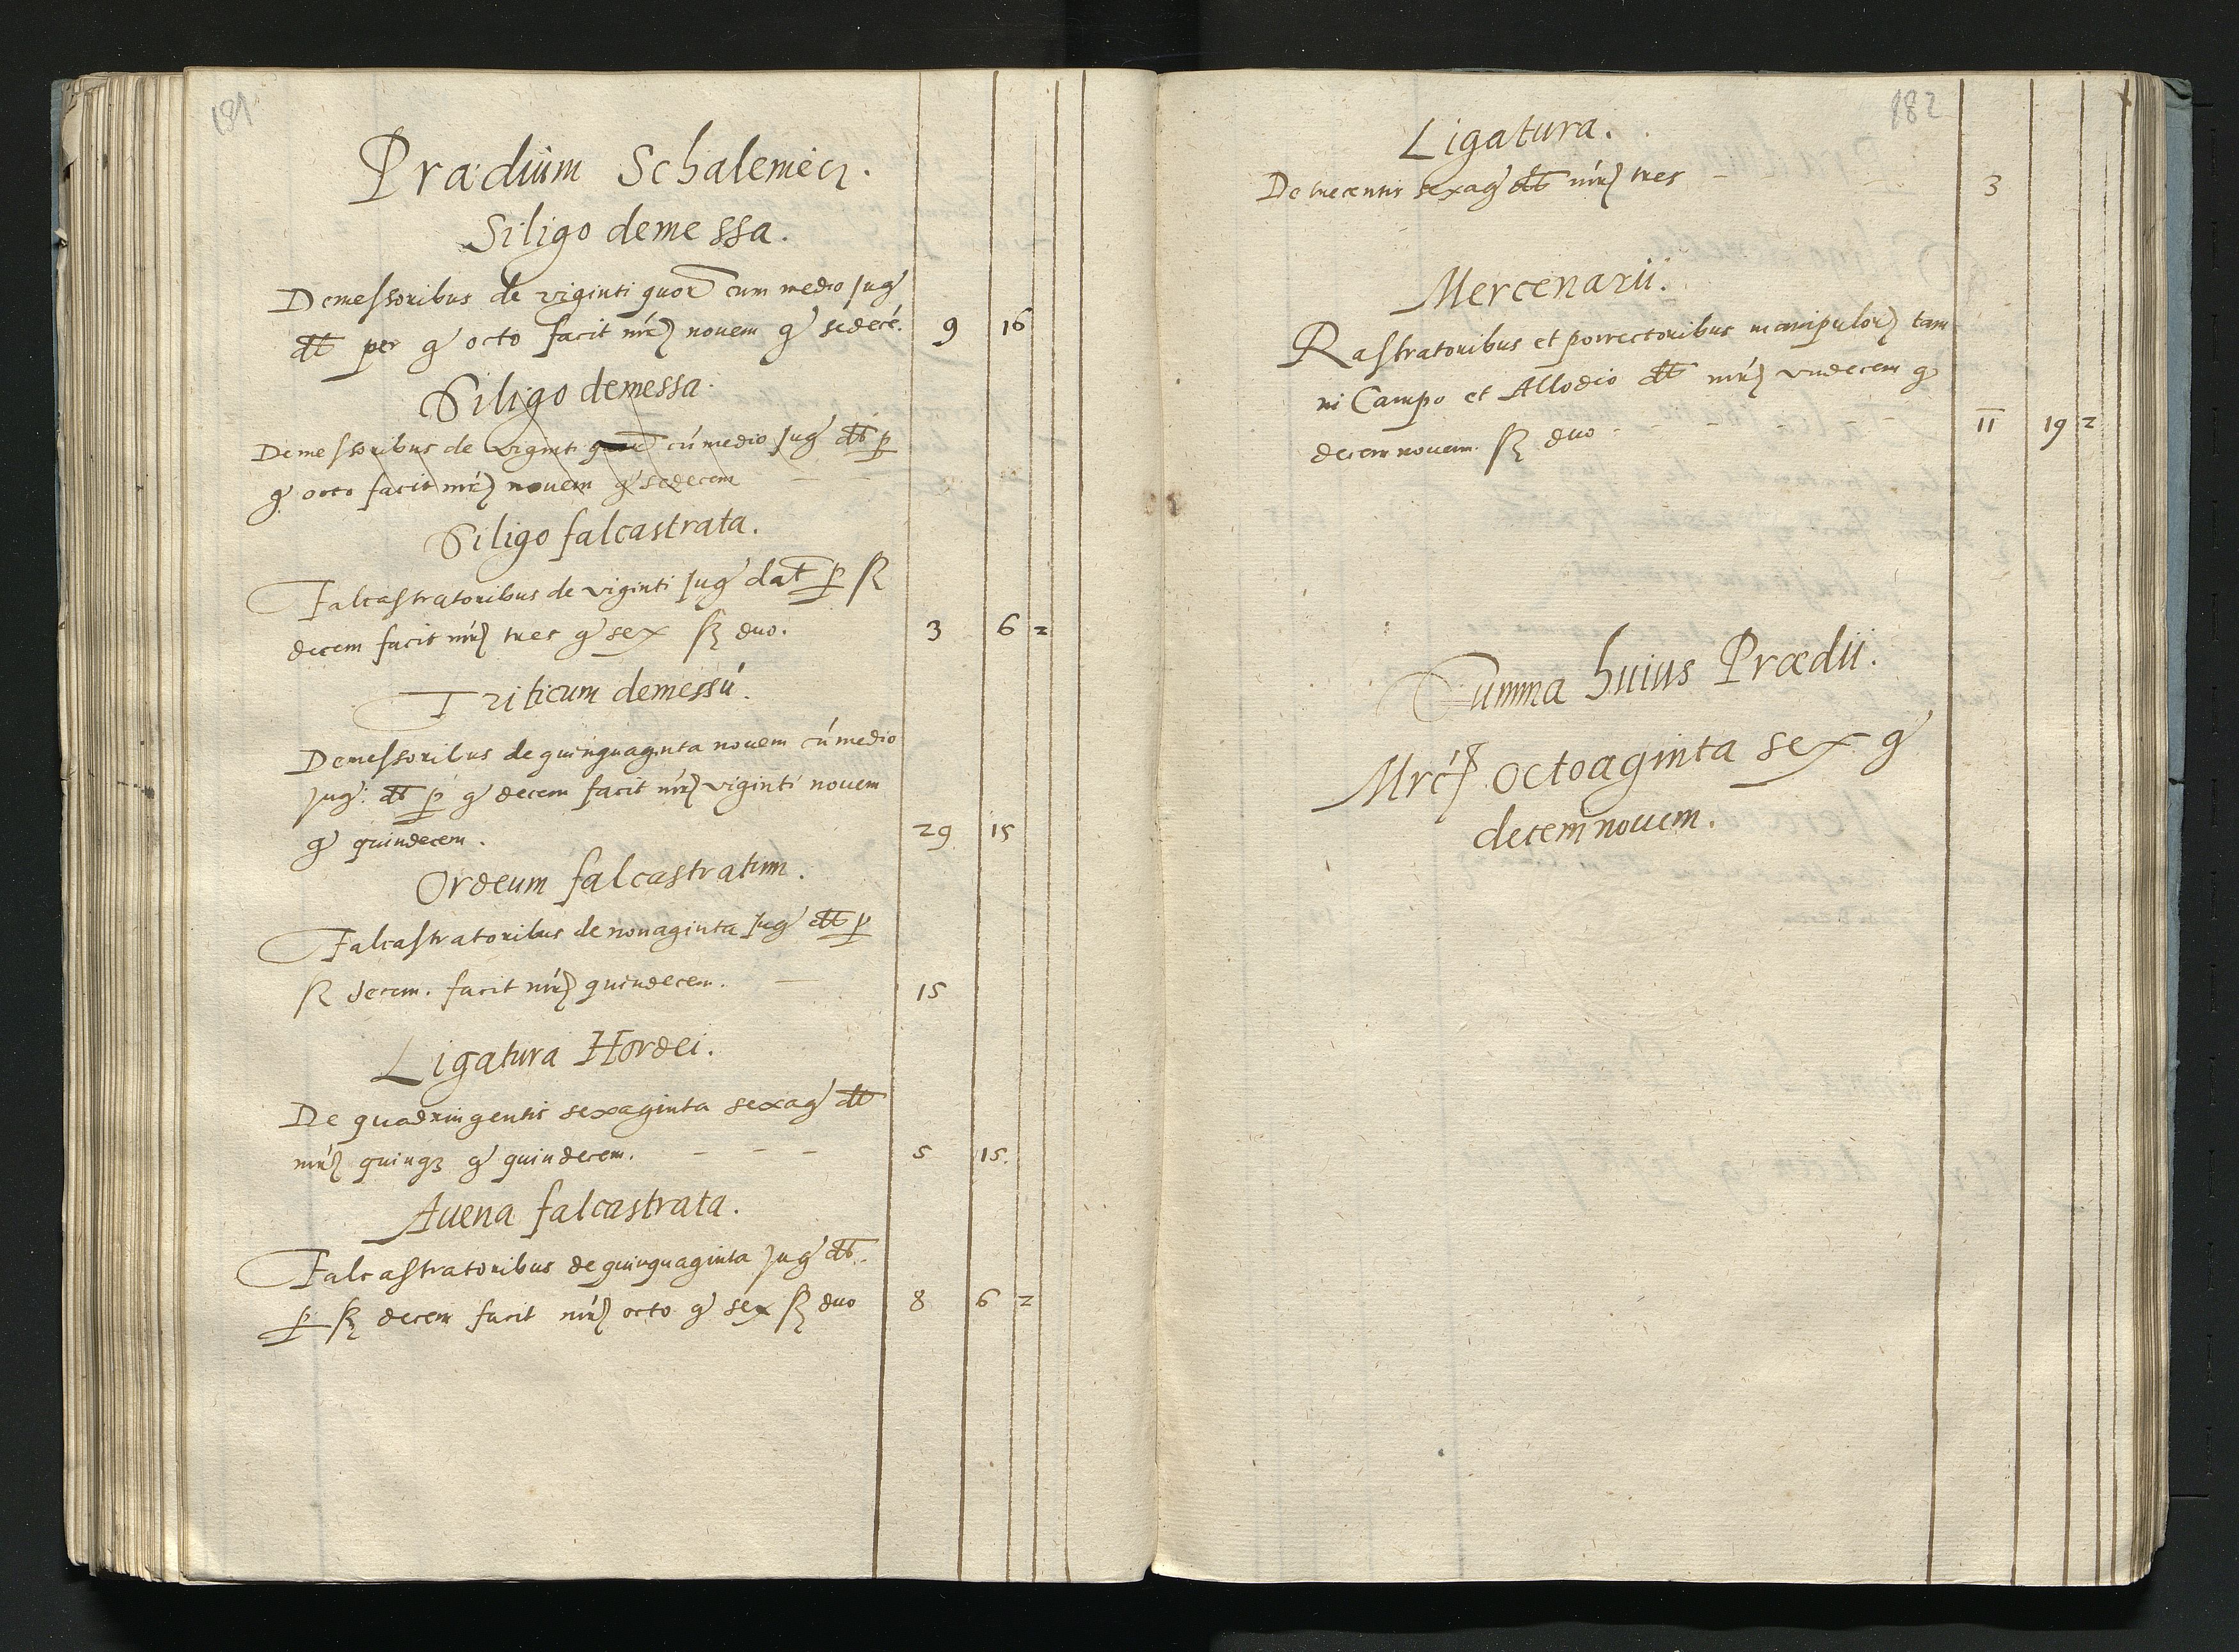 181
Prædium Schalemecz.
Siligo demessa.
Demessoribus de viginti quor cum medio jug
dtt per g octo facit mrc novem g sedecé. 9 16
Siligo demessa.
Demessoribus de viginti cú medio jug dtt p
g octo facit mrc novem g sedecem
Siligo falcastrata.
Falcastratoribus de viginti jug dat p ß
decem facit mrc tres g sex ß duo. 3 6 2
Triticum demessú.
Demessoribus de quinquaginta novem cú medio
jug: dtt p g decem facit mrc viginti novem
g quindecem. 29 15
Ordeum falcastratum.
Falcastratoribus de nonaginta jug dtt p
ß decem. facit mrc quindecem. 15
Ligatura Hordei.
De quadringentis sexaginta sexag dtt
mrc quinqz g quindecem. - - - 5 15.
Auena falcastrata.
Falcastratoribus de quinquaginta jug dtt
p ß decem facit mrc octo g sex ß duo 8 6 2
182
Ligatura.
De trecentis sexag dtt mrc tres - 3
Mercenarii.
Rastratoribus et porrectoribus manipulor tam
in Campo et Allodio dtt mrc vndecem g
decem nouem. ß duo - - - - - 11 19 2
Summa huius Prædii.
Mrc octoaginta sex g
decem nouem.